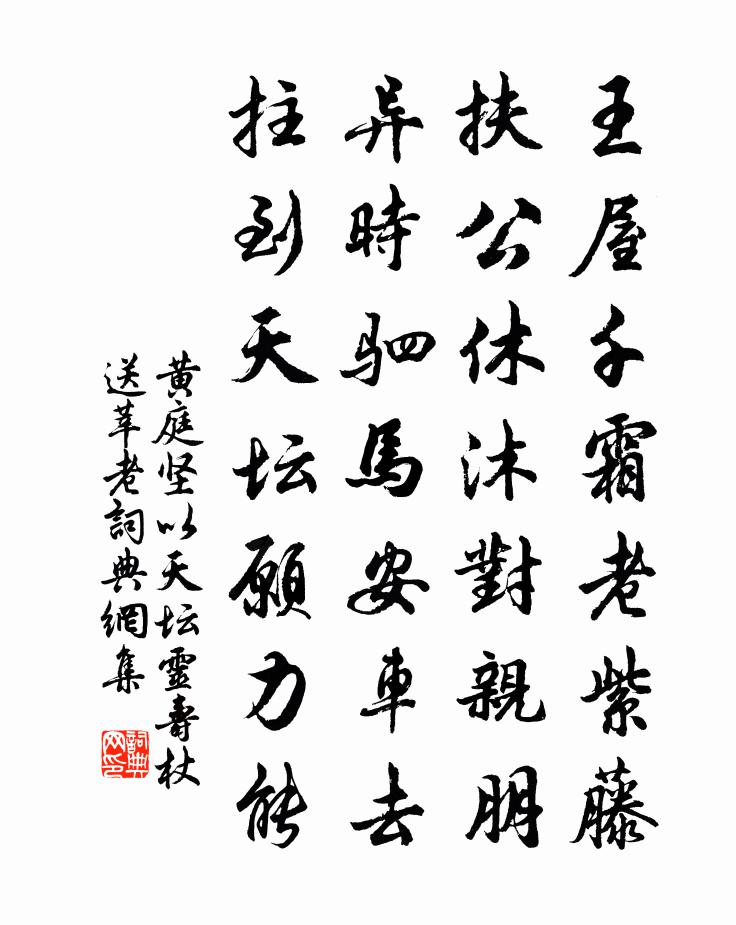 王屋千霜老紫藤
扶公休沐對親朋
异時驷馬安車去
拄到天坛願力能
黄庭坚以天坛靈壽杖
送莘老詞典網集
詞典
网印